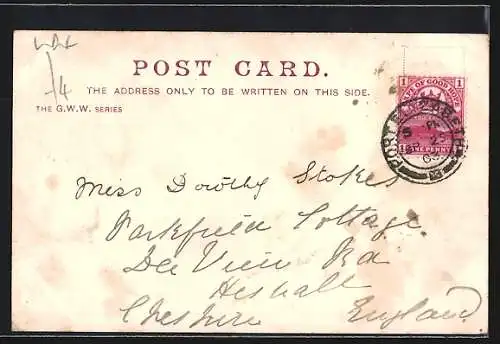 POST CARD.
THE ADDRESS ONLY TO BE WRITTEN ON THIS SIDE.
THE G.W.W. SERIES
1 OF GOOD HOPE 1
ONE PENNY
PORT ELIZABETH
Miss Dorothy Stokes
Parkfield Cottage.
Dee View Rd
Heswall
Cheshire England